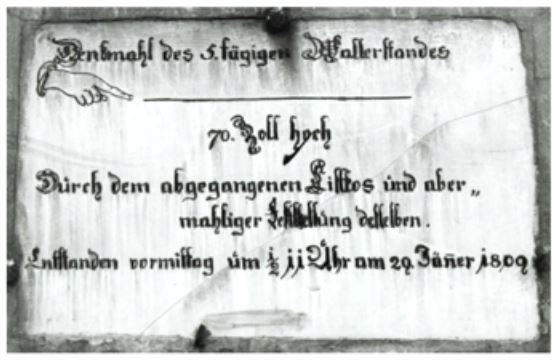 Denkmahl des 5. fügigen Wasserstandes
70. Zoll hoch
Durch dem abgegangenen Eisstos und aber„
mahliger desselben.
Entstanden vormittag um ½ 11 Uhr am 29. Jäner 1809